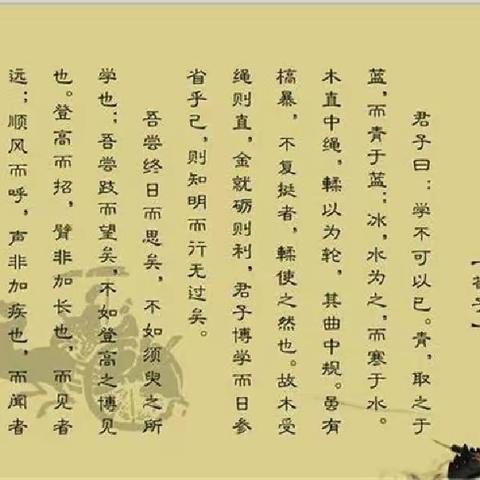 【荀子】
君子曰：学不可以已。青，取之于
蓝，而青于蓝；冰，水为之，而寒于水。
木直中绳，輮以为轮，其曲中规。虽有
槁暴，不复挺者，輮使之然也。故木受
绳则直，金就砺则利，君子博学而日参
省乎己，则知明而行无过矣。
吾尝终日而思矣，不如须臾之所
学也；吾尝跂而望矣，不如登高之博见
也。登高而招，臂非加长也，而见者
远；顺风而呼，声非加疾也，而闻者